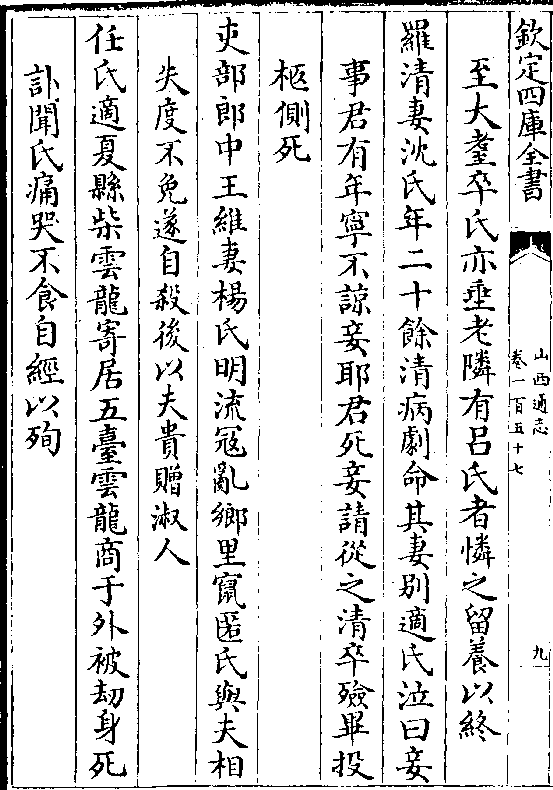 欽定四庫全書
山西通志
卷一百五十七
九
至大耋卒氏亦垂老隣有吕氏者憐之留養以終
羅清妻沈氏年二十餘清病劇命其妻别適氏泣曰妾
事君有年寧不諒妾耶君死妾請從之清卒殮畢投
柩側死
吏部郎中王維妻楊氏明流冦亂鄉里竄匿氏與夫相
失度不免遂自殺後以夫貴贈淑人
任氏適夏縣柴雲龍寄居五臺雲龍商于外被劫身死
訃聞氏痛哭不食自經以殉